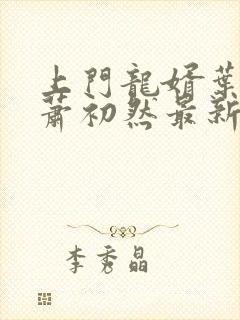 上門龍婿葉
蕭初然最新
李秀晶